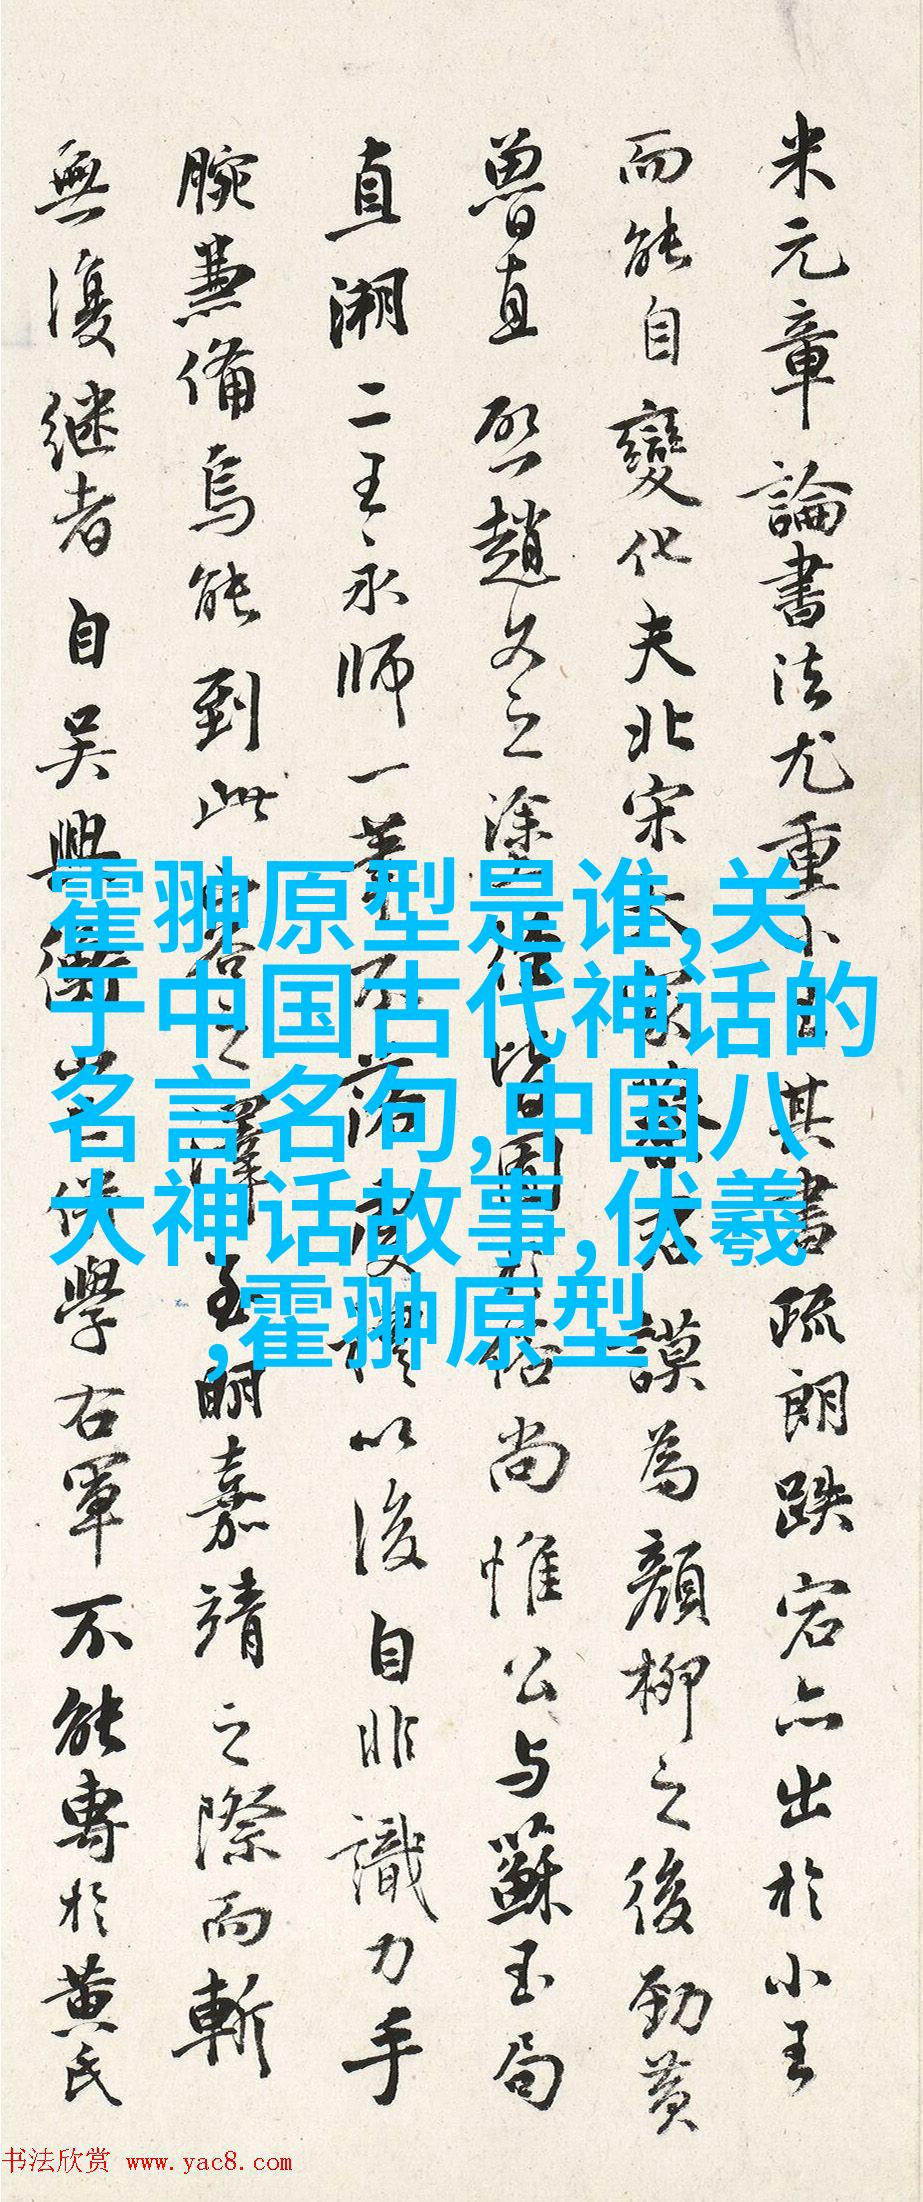 米元章論書法尤重小王其書疏朗跌宕亦出於小王
而能自變化夫北宋大家蔡君謨為顏柳之後勁黄
魯直 趙文之塗徑皆 尚惟公与蘇玉局
直溯二王永師一筆不落 以後自非識力手
腕兼備烏能到此 之澤至明嘉靖之際而斬
無復继者自吴興 學右軍不能專於黄氏
霍翀原型是谁,关
于中国古代神话的
名言名句,中国八
大神话故事,伏羲
,霍翀原型
书法欣赏 www.yac8.com